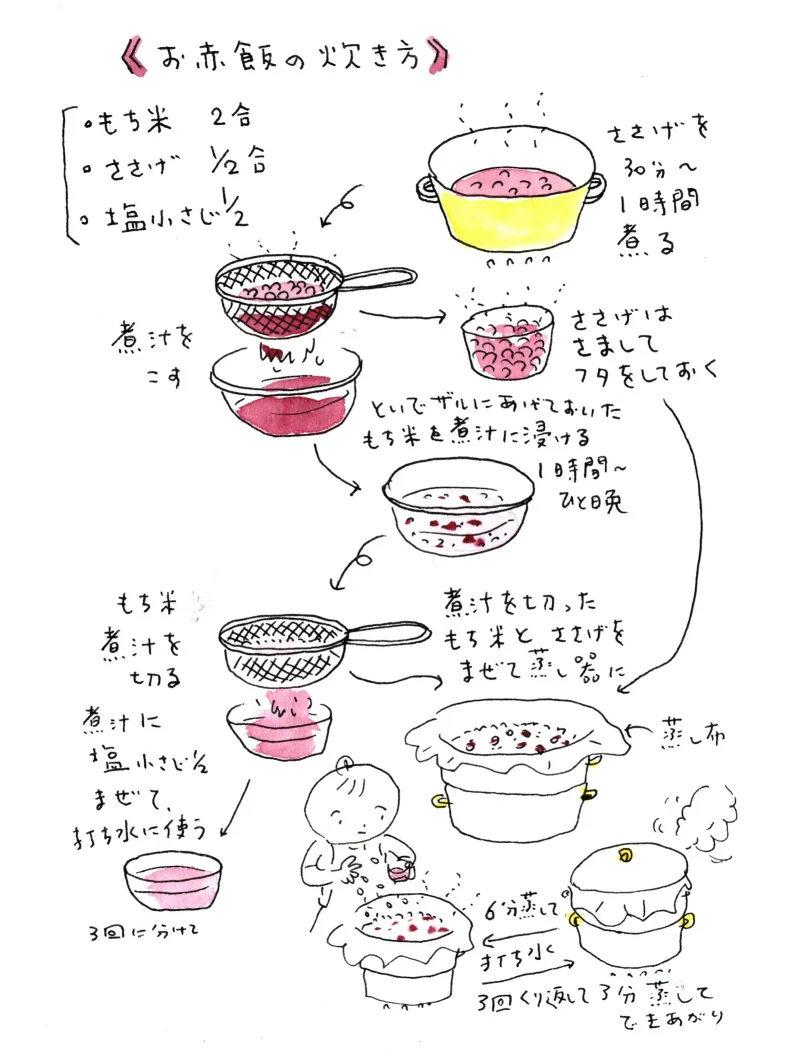 《お赤飯の炊き方》
・もち米 2合
・ささげ 1/2合
・塩小さじ1/2
ささげを
30分〜
1時間
煮る
煮汁を
こす
ささげは
さまして
フタをしておく
といでザルにあげておいた
もち米を煮汁に浸ける
1時間〜
ひと晩
もち米
煮汁を
切る
煮汁を切った
もち米とささげを
まぜて蒸し器に
蒸し布
煮汁に
塩小さじ1/2
まぜて、
打ち水に使う
3回に分けて
6分蒸して
打ち水
3回くり返して3分蒸して
できあがり